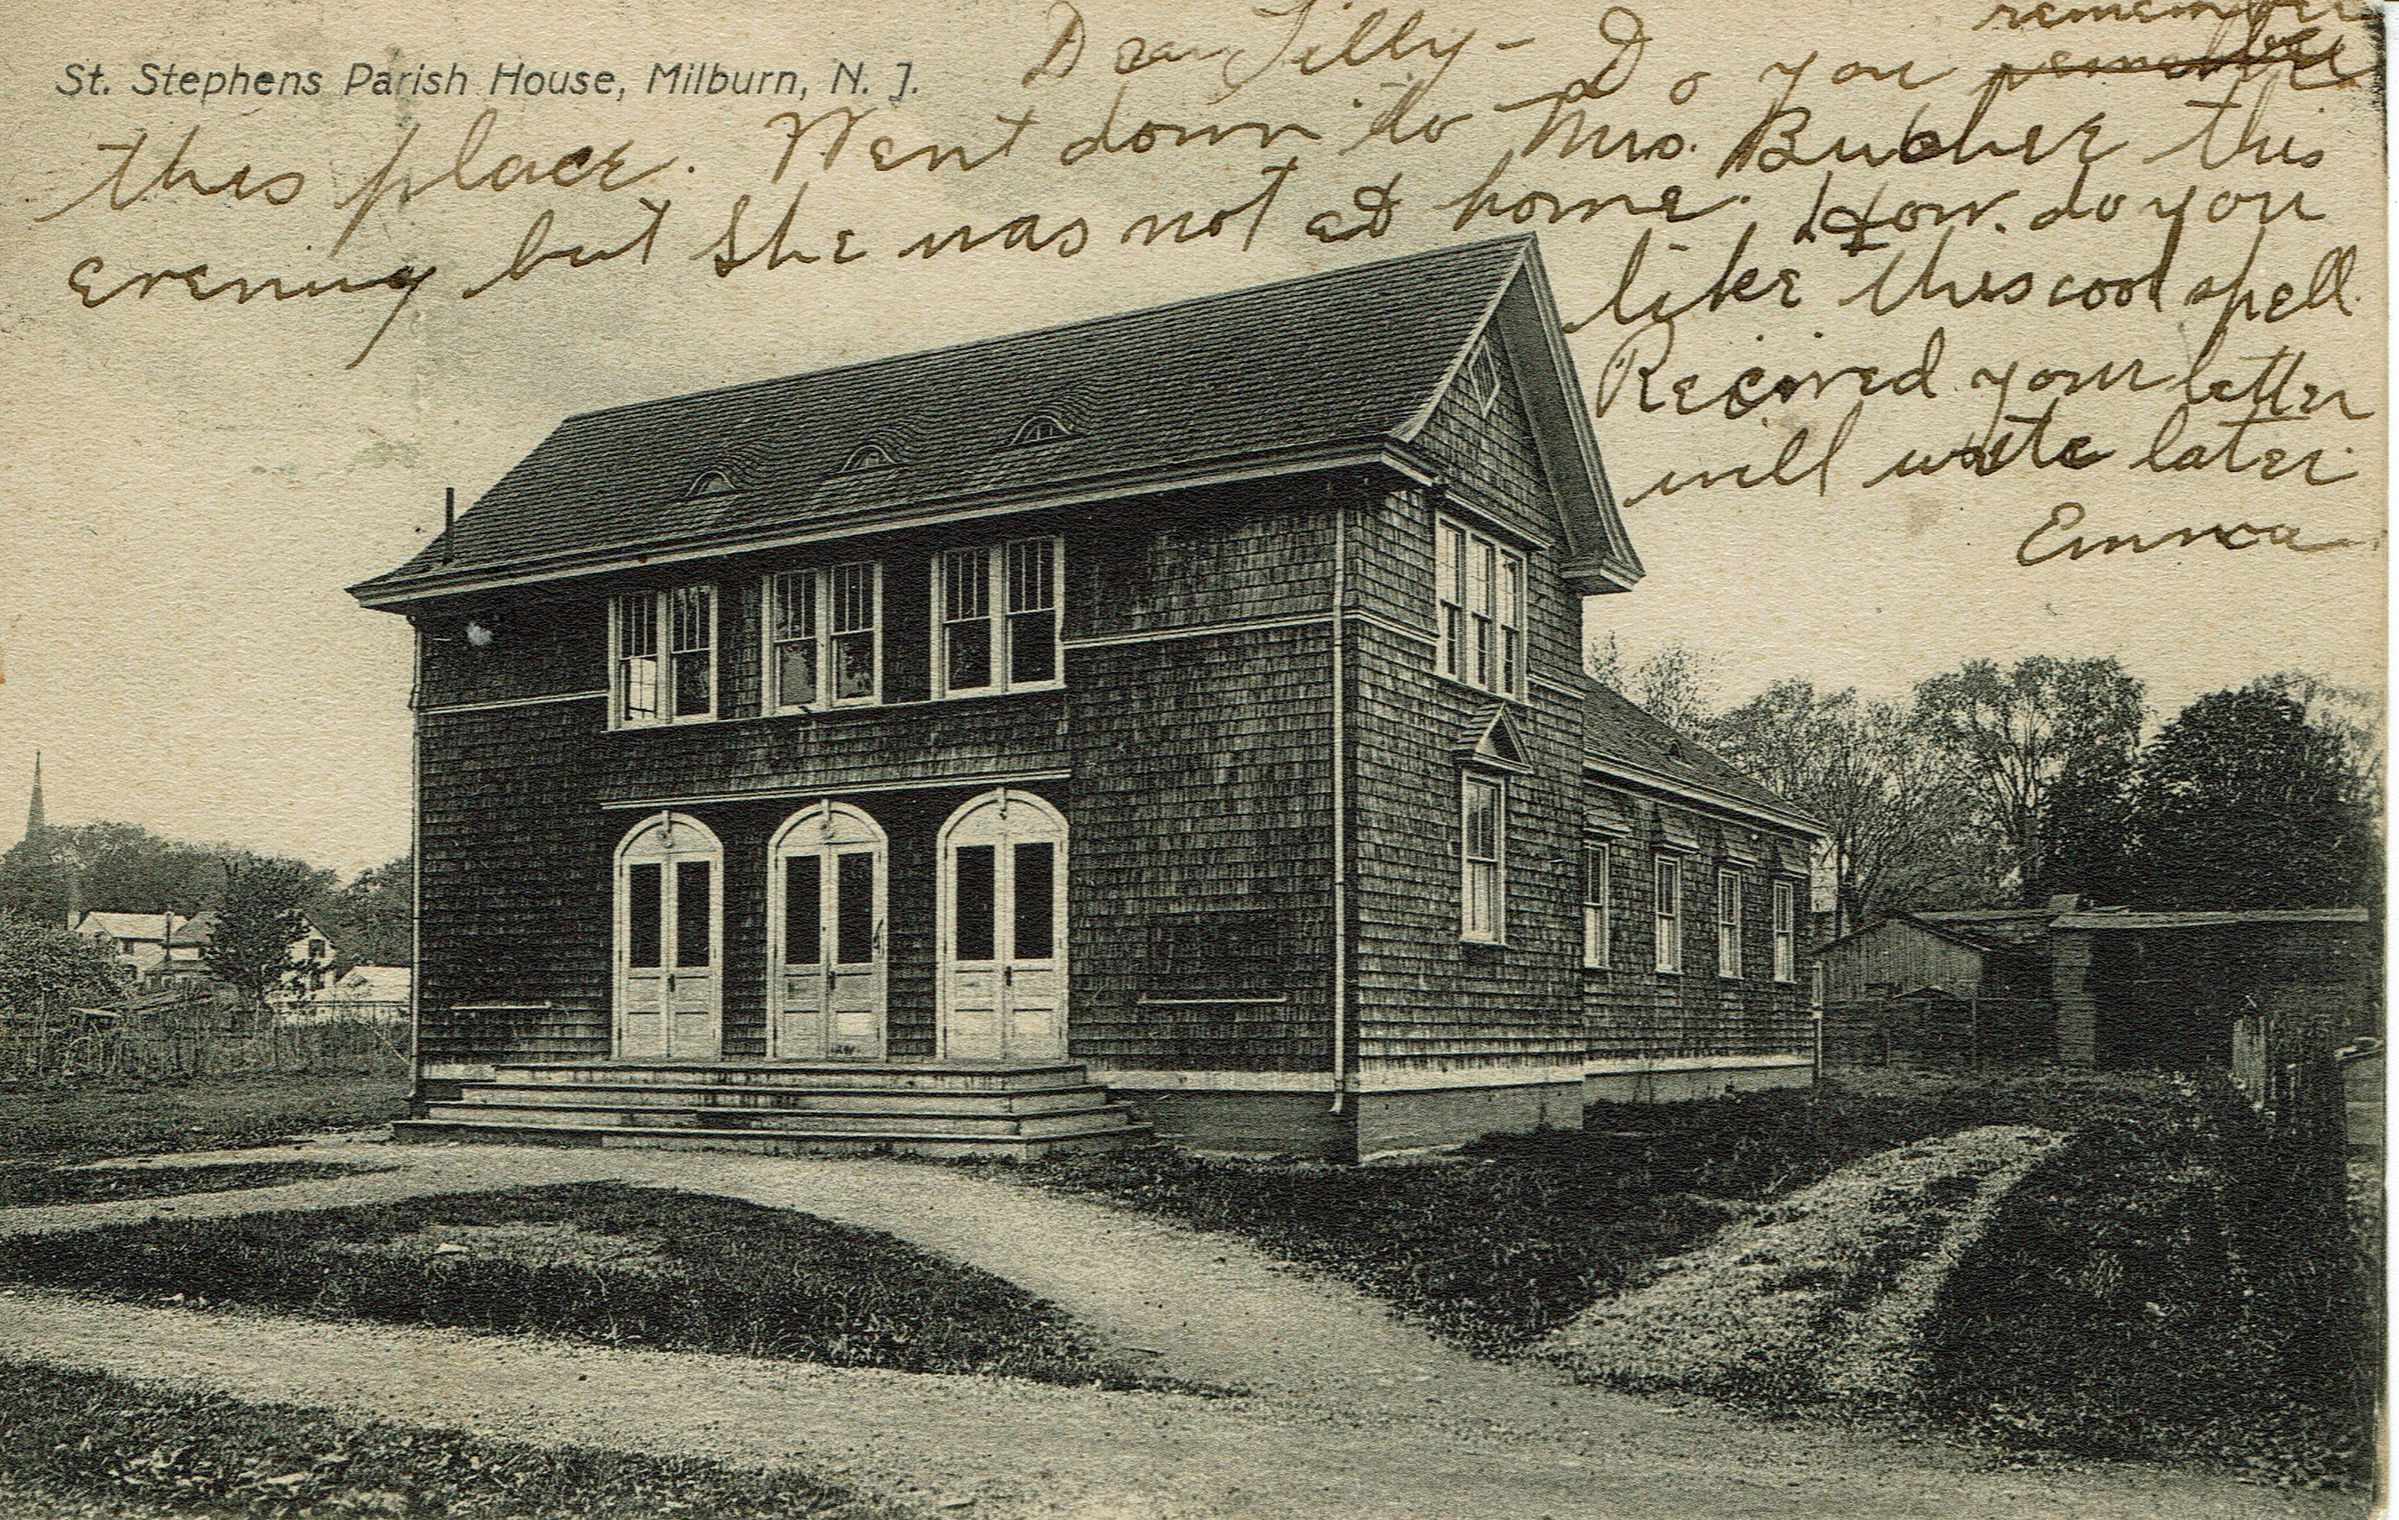 St. Stephens Parish House, Milburn, N. J.
Dear Tilly – Do you remember
this place. Went down to Mrs. this
evening but She was not at home. How do you
like this cool spell.
Recieved your letter
will write later
Emma